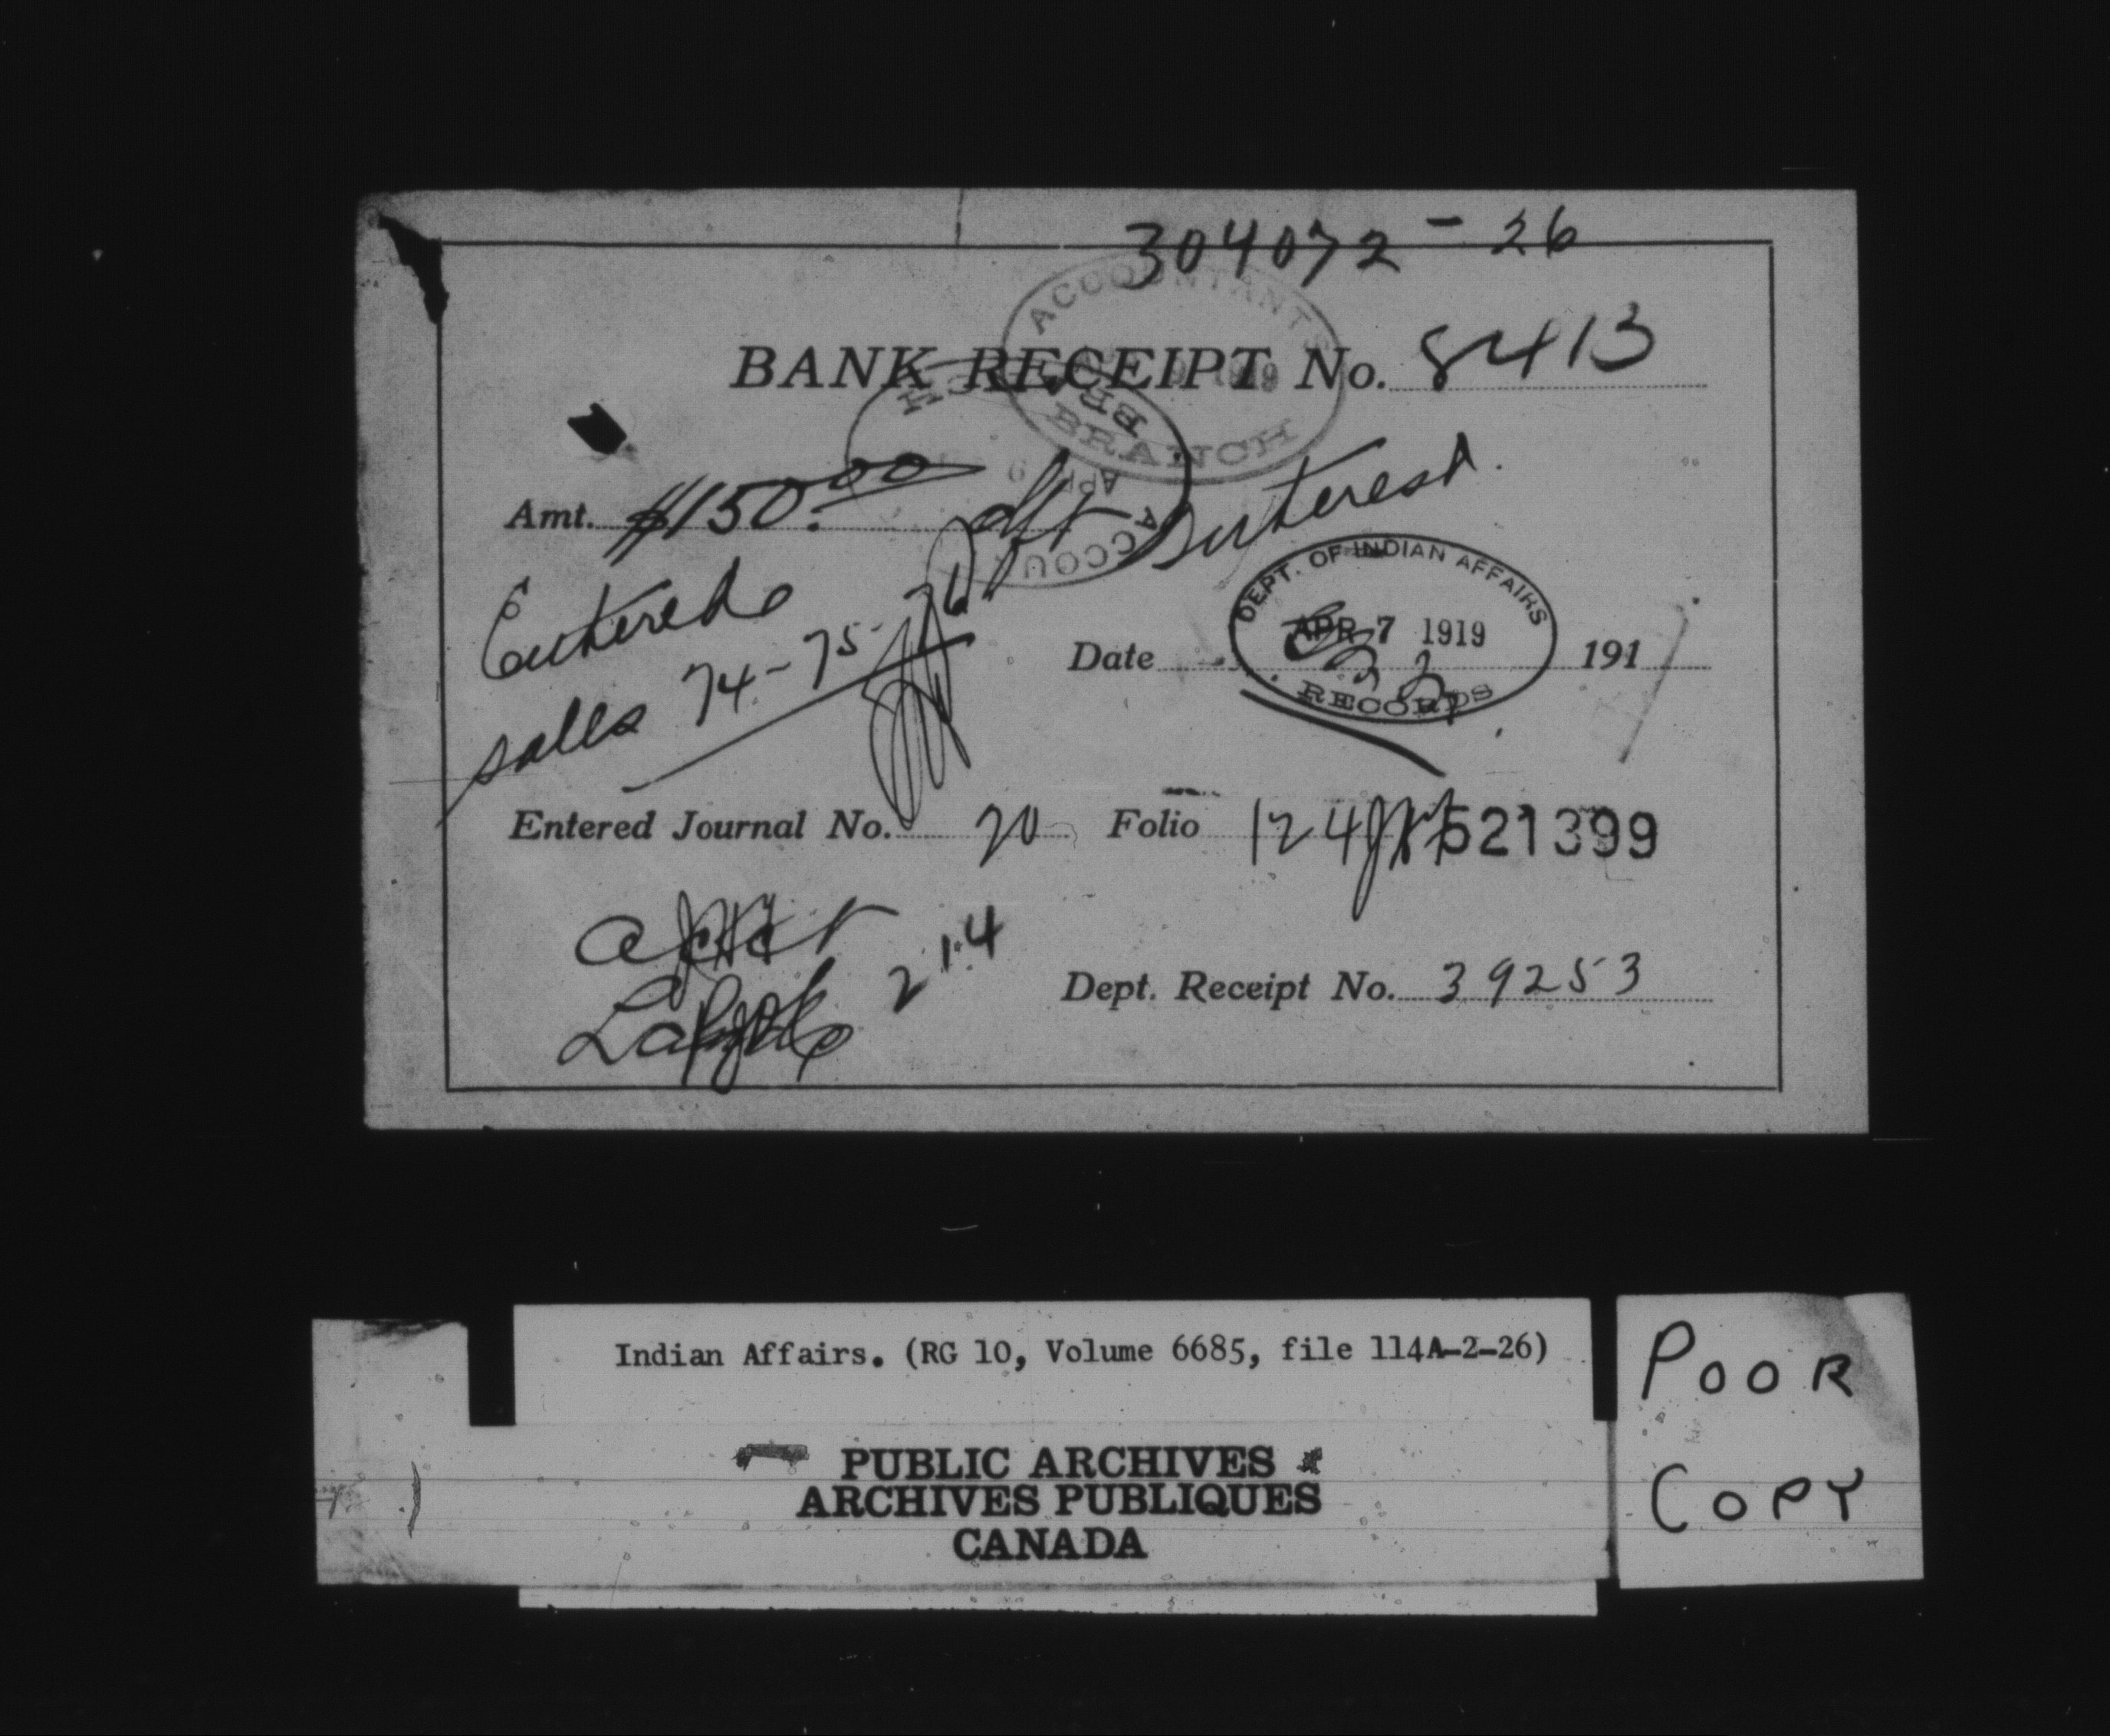 304072 - 26
ACCOUNTANTS
1919
BRANCH
BANK RECEIPT No. 8413
Amt. $150.00 Interest.
ACCOU
APR
Entered
DEPT. OF INDIAN AFFAIRS
APR 7 1919
RECORDS
sales 74-75 76
Date 191
Entered Journal No. 20 Folio 124 521399
21.4
Dept. Receipt No. 39253
Indian Affairs. (RG 10, Volume 6685, file 114A-2-26)
PUBLIC ARCHIVES
ARCHIVES PUBLIQUES
CANADA
POOR
COPY